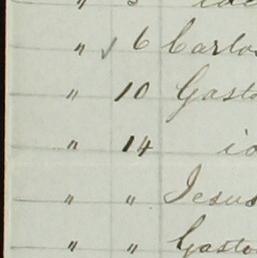 "
" √ 6 Carlos
" 10 Gasto
" 14 id
" " Jesus
" " Gasto